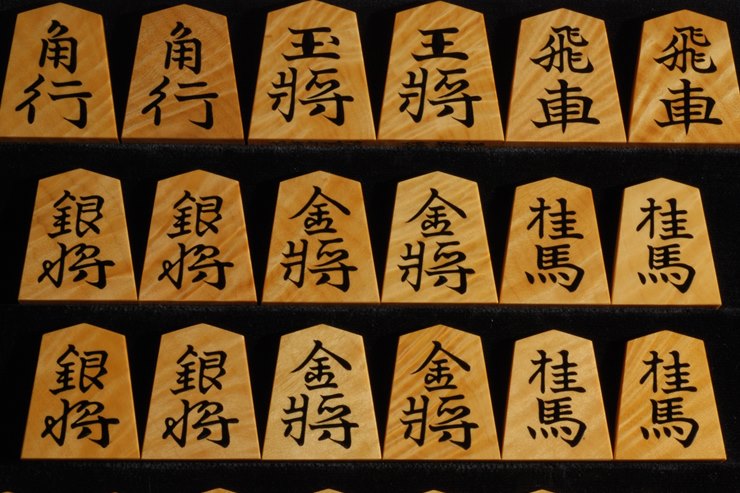 角行 角行 玉將 王將 飛車 飛車
銀将 銀将 金將 金將 桂馬 桂馬
銀将 銀将 金將 金將 桂馬 桂馬